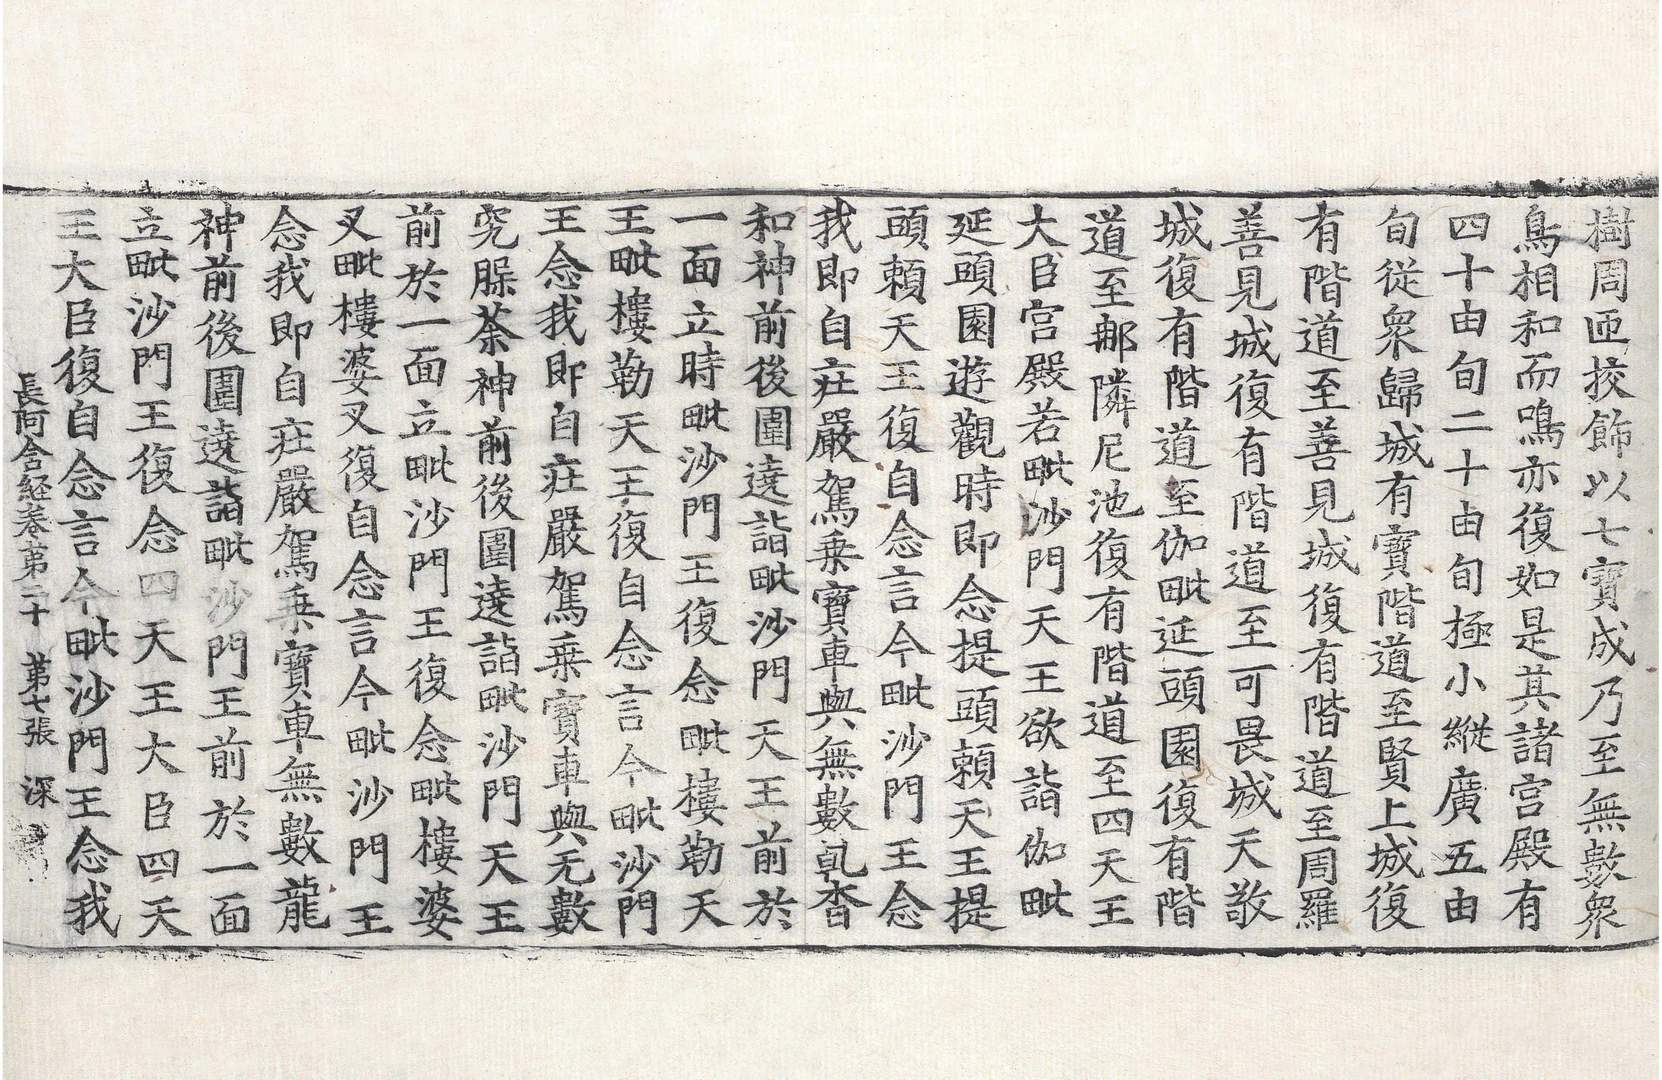 樹周匝挍飾以七寶成乃至無數衆
鳥相和而鳴亦復如是其諸宮殿有
四十由旬二十由旬極小縱廣五由
旬從衆歸城有寶階道至賢上城復
有階道至善見城復有階道至周羅
善見城復有階道至可畏城天敬
城復有階道至伽毗延頭園復有階
道至𨚗隣尼池復有階道至四天王
大臣宮殿若毗沙門天王欲詣伽毗
延頭園遊觀時即念提頭賴天王提
頭賴天王復自念言今毗沙門王念
我即自莊嚴駕乗寶車與無數乹沓
和神前後圍遶詣毗沙門天王前於
一面立時毗沙門王復念毗樓勒天
王毗樓勒天王復自念言今毗沙門
王念我即自莊嚴駕乗寶車與无數
究䐗荼神前後圍遶詣毗沙門天王
前於一面立毗沙門王復念毗樓婆
叉毗樓婆叉復自念言今毗沙門王
念我即自莊嚴駕乗寶車無數龍
神前後圍遶詣毗沙門王前於一面
立毗沙門王復念四天王大臣四天
王大臣復自念言今毗沙門王念我
長阿含経卷第二十 第七張 深